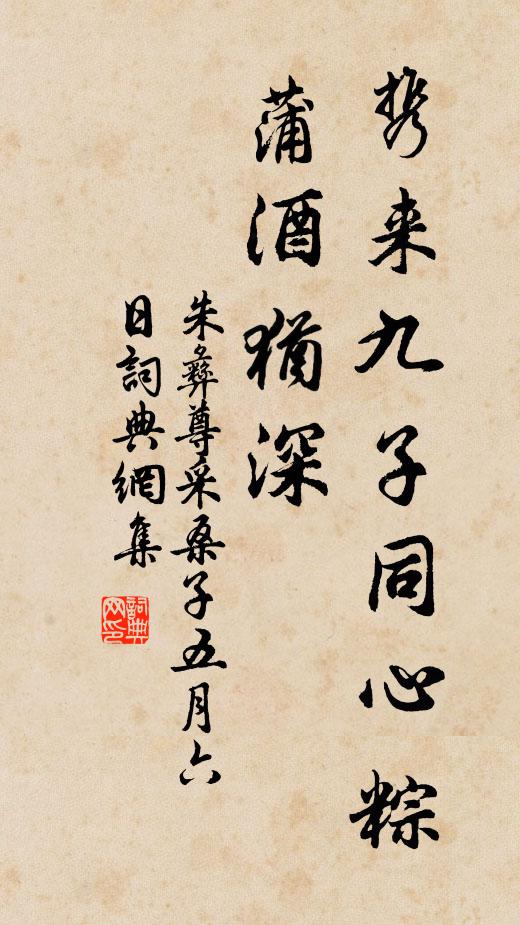 携来九子同心粽
蒲酒猶深
朱彝尊采桑子五月六
日詞典網集
詞典网印